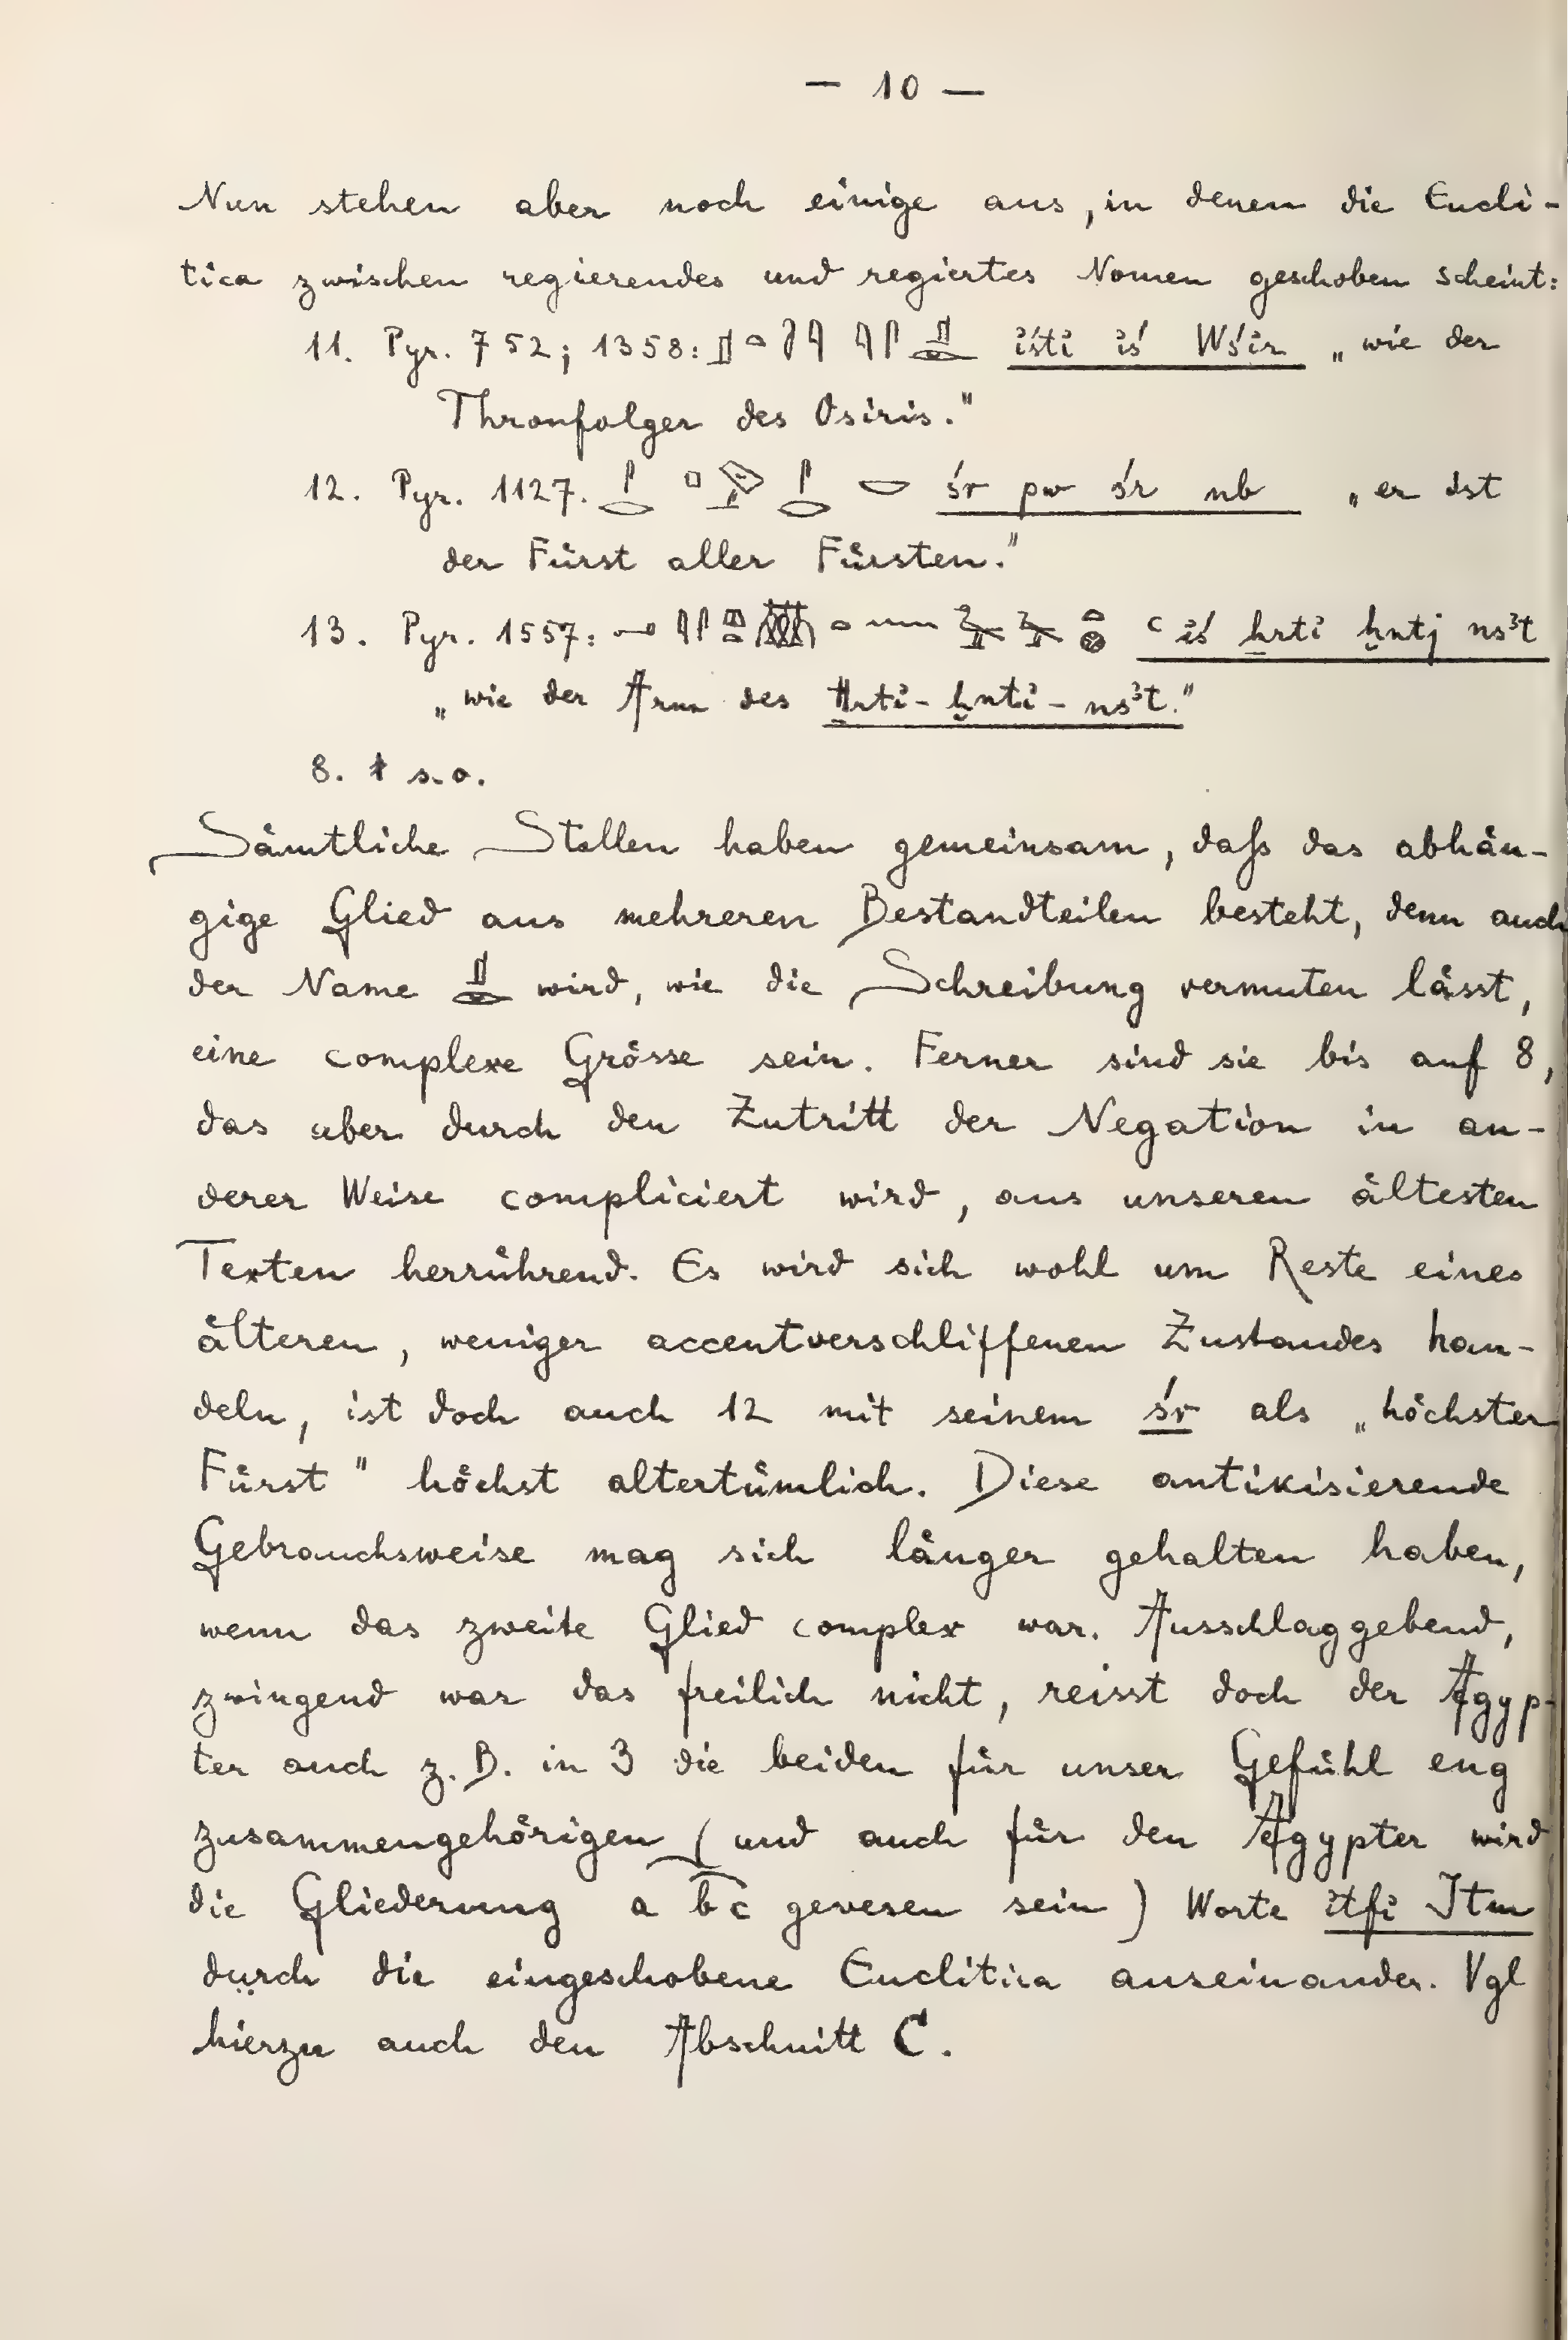 — 10 —
Nun stehen aber noch einige aus, in denen die Encli-
tica zwischen regierendes und regiertes Nomen geschoben scheint:
11. Pyr. 752; 1358: 𓊨𓏏𓋴𓇋 𓇋𓋴 𓊨𓁹 i͗śti͗ i͗ś Wśi͗r „wie der
Thronfolger des Osiris."
12. Pyr. 1127. 𓋴𓂋 𓊪𓅱 𓋴𓂋 𓎟 śr pw śr nb „er ist
der Fürst aller Fürsten."
13. Pyr. 1557: ꜥ i͗ś ẖrti͗ ḫntj nsꜣt
„wie der Arm des Ḫrti͗ - ḫnti͗ - nsꜣt."
8. s. o.
Sämtliche Stellen haben gemeinsam, daß das abhän-
gige Glied aus mehreren Bestandteilen besteht, denn auch
der Name 𓊨𓁹 wird, wie die Schreibung vermuten lässt,
eine complexe Grösse sein. Ferner sind sie bis auf 8,
das aber durch den Zutritt der Negation in an-
derer Weise compliciert wird, aus unseren ältesten
Texten herrührend. Es wird sich wohl um Reste eines
älteren, weniger accentverschliffenen Zustandes han-
deln, ist doch auch 12 mit seinem śr als „höchster
Fürst" höchst altertümlich. Diese antikisierende
Gebrauchsweise mag sich länger gehalten haben,
wenn das zweite Glied complex war. Ausschlaggebend,
zwingend war das freilich nicht, reisst doch der Ägyp-
ter auch z. B. in 3 die beiden für unser Gefühl eng
zusammengehörigen (und auch für den Ägypter wird
die Gliederung a b c gewesen sein) Worte i͗tfi͗ Jtm
durch die eingeschobene Enclitica auseinander. Vgl
hierzu auch den Abschnitt C.